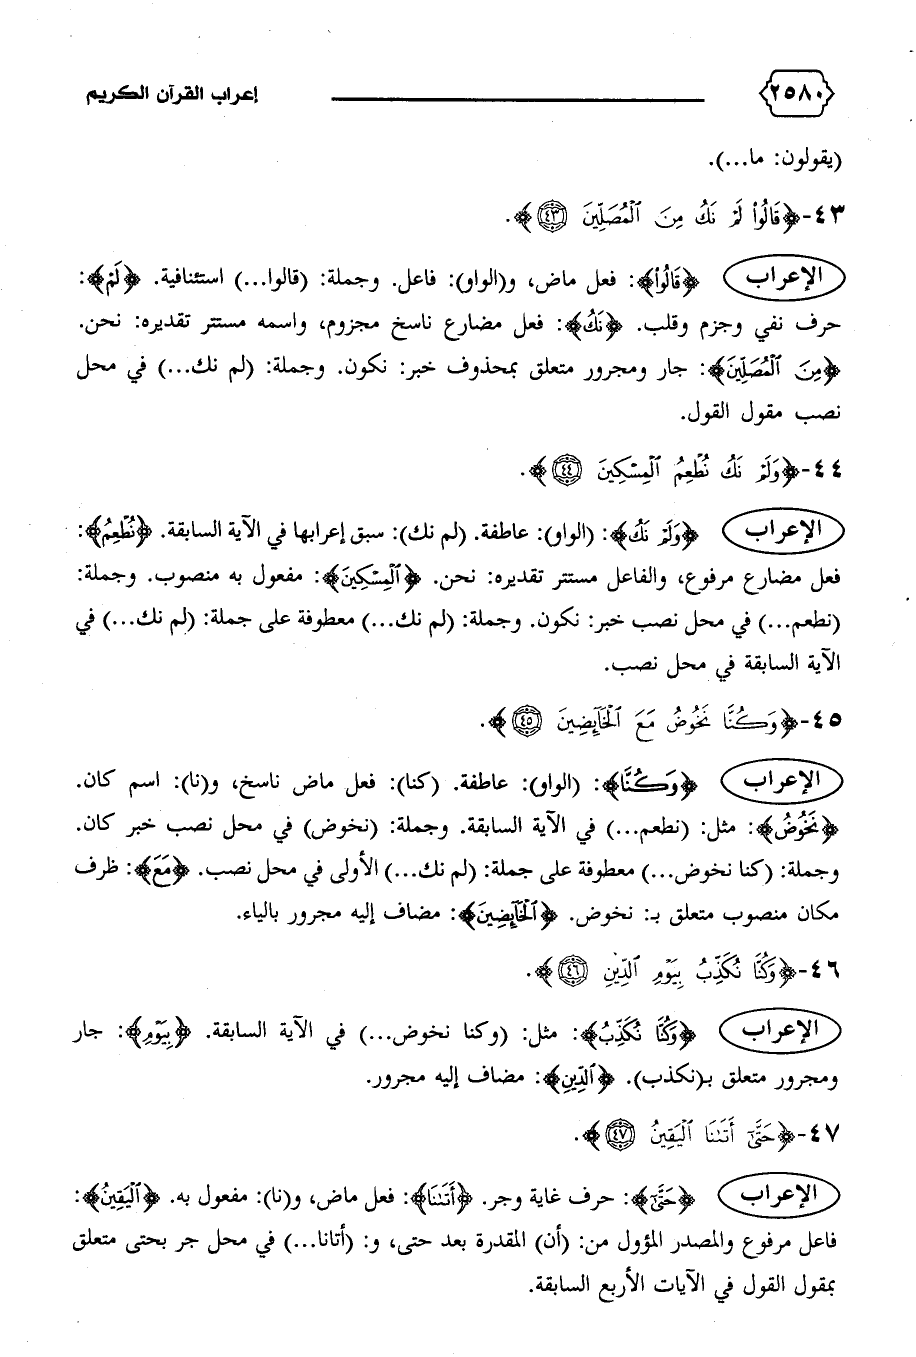 ٢٥٨٠ إعراب القرآن الكريم
(يقولون: ما...).
٤٣-﴿قَالُوا۟ لَمْ نَكُ مِنَ ٱلْمُصَلِّينَ ٤٣﴾.
الإعراب ﴿قَالُوا۟﴾: فعل ماض، و(الواو): فاعل. وجملة: (قالوا...) استئنافية. ﴿لَمْ﴾:
حرف نفي وجزم وقلب. ﴿نَكُ﴾: فعل مضارع ناسخ مجزوم، واسمه مستتر تقديره: نحن.
﴿مِنَ ٱلْمُصَلِّينَ﴾: جار ومجرور متعلق بمحذوف خبر: نكون. وجملة: (لم نك...) في محل
نصب مقول القول.
٤٤-﴿وَلَمْ نَكُ نُطْعِمُ ٱلْمِسْكِينَ ٤٤﴾.
الإعراب ﴿وَلَمْ نَكُ﴾: (الواو): عاطفة. (لم نك): سبق إعرابها في الآية السابقة. ﴿نُطْعِمُ﴾:
فعل مضارع مرفوع، والفاعل مستتر تقديره: نحن. ﴿ٱلْمِسْكِينَ﴾: مفعول به منصوب. وجملة:
(نطعم...) في محل نصب خبر: نكون. وجملة: (لم نك...) معطوفة على جملة: (لم نك...) في
الآية السابقة في محل نصب.
٤٥-﴿وَكُنَّا نَخُوضُ مَعَ ٱلْخَآئِضِينَ ٤٥﴾.
الإعراب ﴿وَكُنَّا﴾: (الواو): عاطفة. (كنا): فعل ماض ناسخ، و(نا): اسم كان.
﴿نَخُوضُ﴾: مثل: (نطعم...) في الآية السابقة. وجملة: (نخوض) في محل نصب خبر كان.
وجملة: (كنا نخوض...) معطوفة على جملة: (لم نك...) الأولى في محل نصب. ﴿مَعَ﴾: ظرف
مكان منصوب متعلق بـ: نخوض. ﴿ٱلْخَآئِضِينَ﴾: مضاف إليه مجرور بالياء.
٤٦-﴿وَكُنَّا نُكَذِّبُ بِيَوْمِ ٱلدِّينِ ٤٦﴾.
الإعراب ﴿وَكُنَّا نُكَذِّبُ﴾: مثل: (وكنا نخوض...) في الآية السابقة. ﴿بِيَوْمِ﴾: جار
ومجرور متعلق بـ(نكذب). ﴿ٱلدِّينِ﴾: مضاف إليه مجرور.
٤٧-﴿حَتَّىٰٓ أَتَىٰنَا ٱلْيَقِينُ ٤٧﴾.
الإعراب ﴿حَتَّىٰٓ﴾: حرف غاية وجر. ﴿أَتَىٰنَا﴾: فعل ماض، و(نا): مفعول به. ﴿ٱلْيَقِينُ﴾:
فاعل مرفوع والمصدر المؤول من: (أن) المقدرة بعد حتى، و: (أتانا...) في محل جر بحتى متعلق
بمقول القول في الآيات الأربع السابقة.